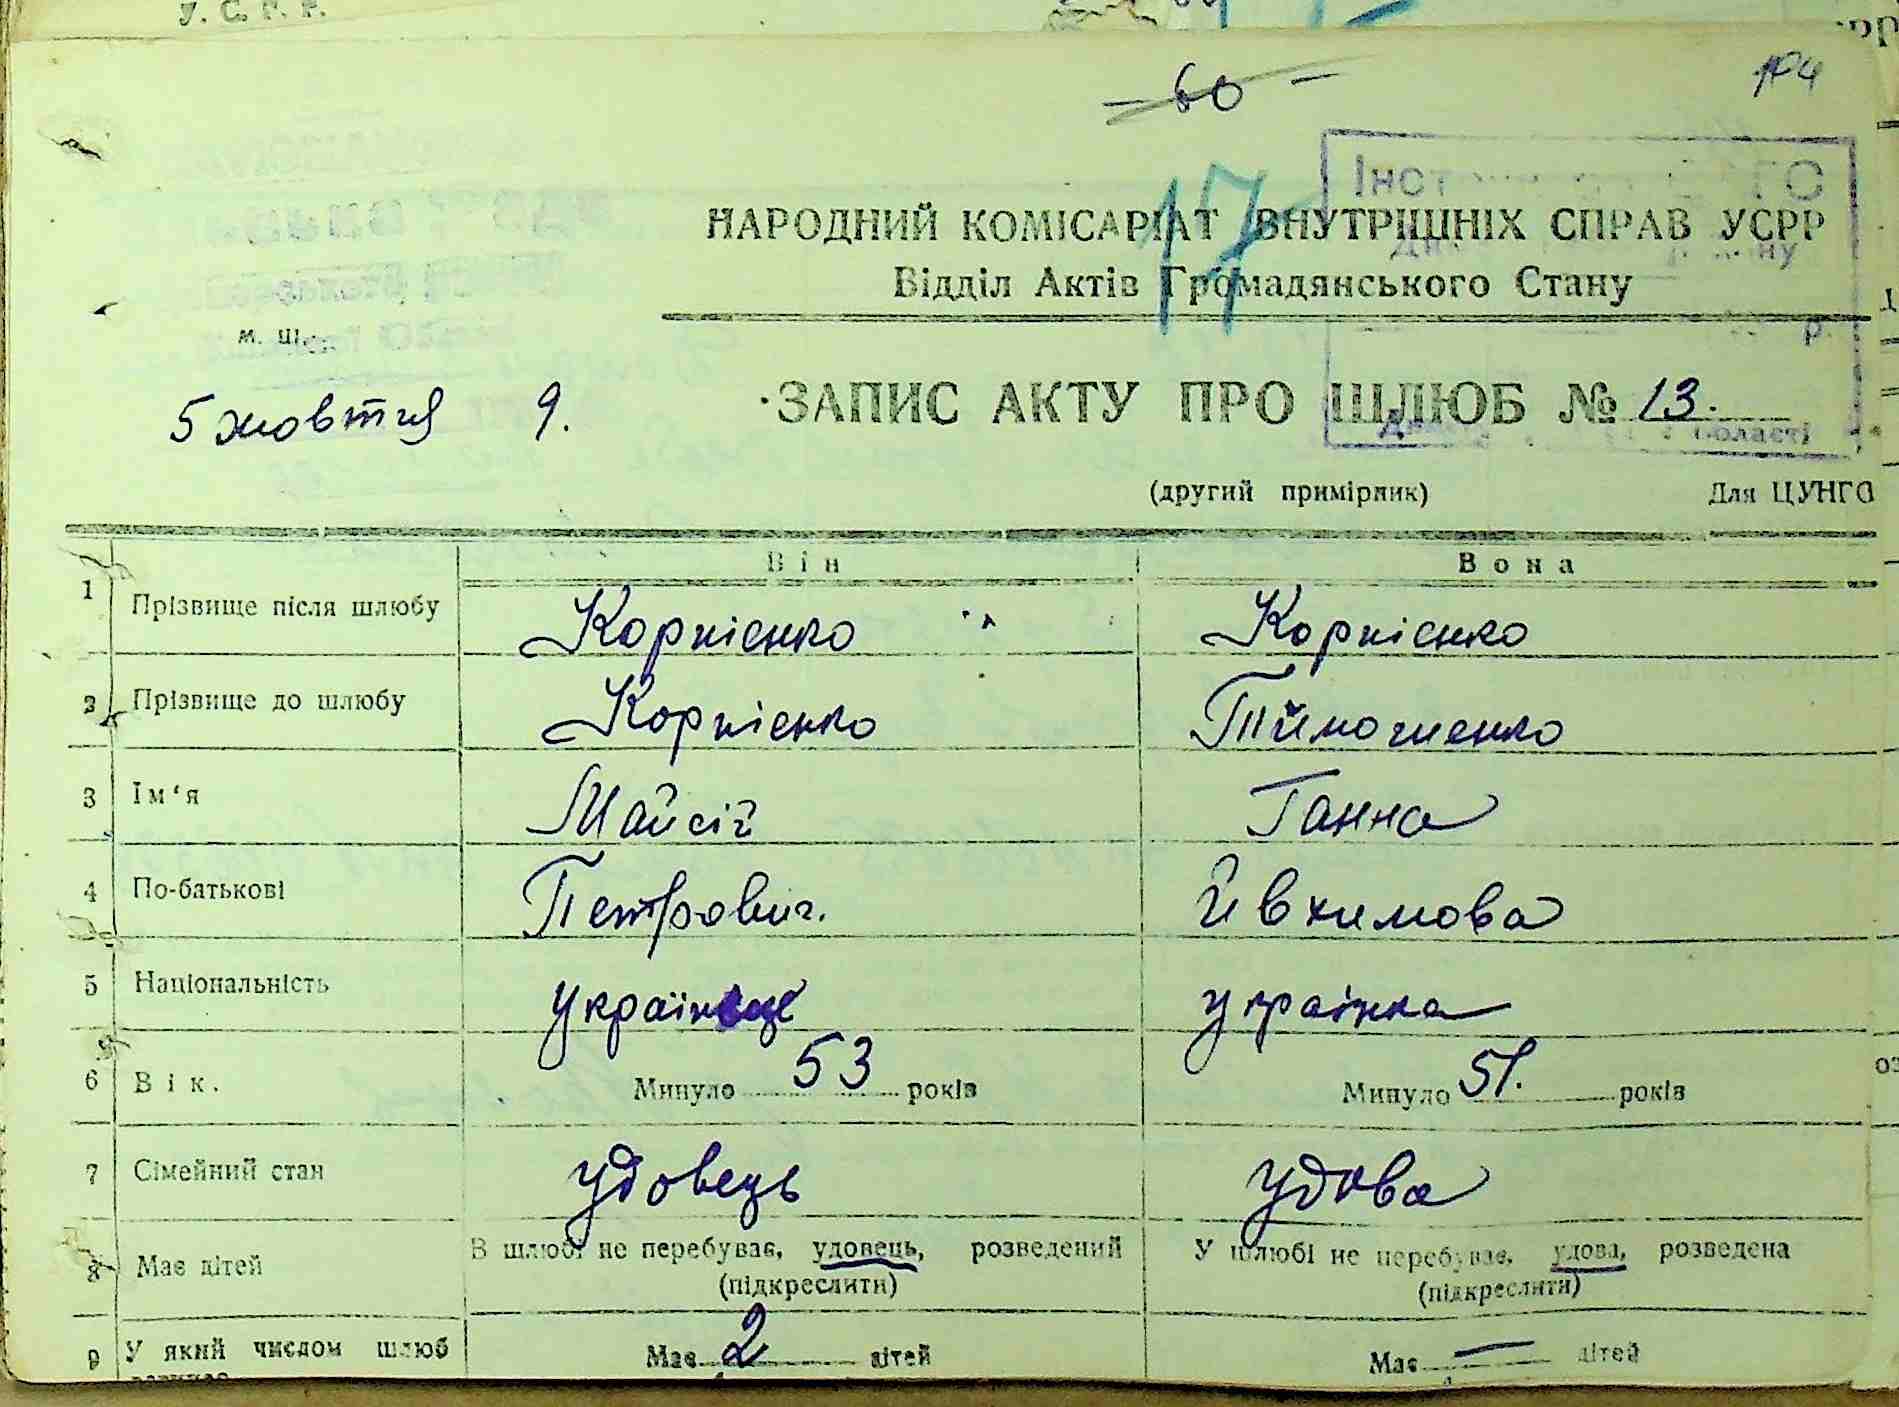 У. С. Р. Р.
60
104
17
НАРОДНИЙ КОМІСАРІАТ ВНУТРІШНІХ СПРАВ УСРР
Відділ Актів Громадянського Стану
р.
5 жовтня 9.
ЗАПИС АКТУ ПРО ШЛЮБ № 13.
області
(другий примірник) Для ЦУНГО
Він Вона
1 Прізвище після шлюбу Корнієнко Корнієнко
2 Прізвище до шлюбу Корнієнко Тимошенко
3 Ім‘я Майсій Ганна
4 По-батькові Петрович. Йвхимова
5 Національність українець українка
6 Вік. Минуло 53 років Минуло 51. років
7 Сімейний стан удовець удова
8 Має дітей В шлюбі не перебуває, удовець, розведений У шлюбі не перебуває, удова, розведена
(підкреслити) (підкреслити)
9 У який числом шлюб Має 2 дітей Має — дітей